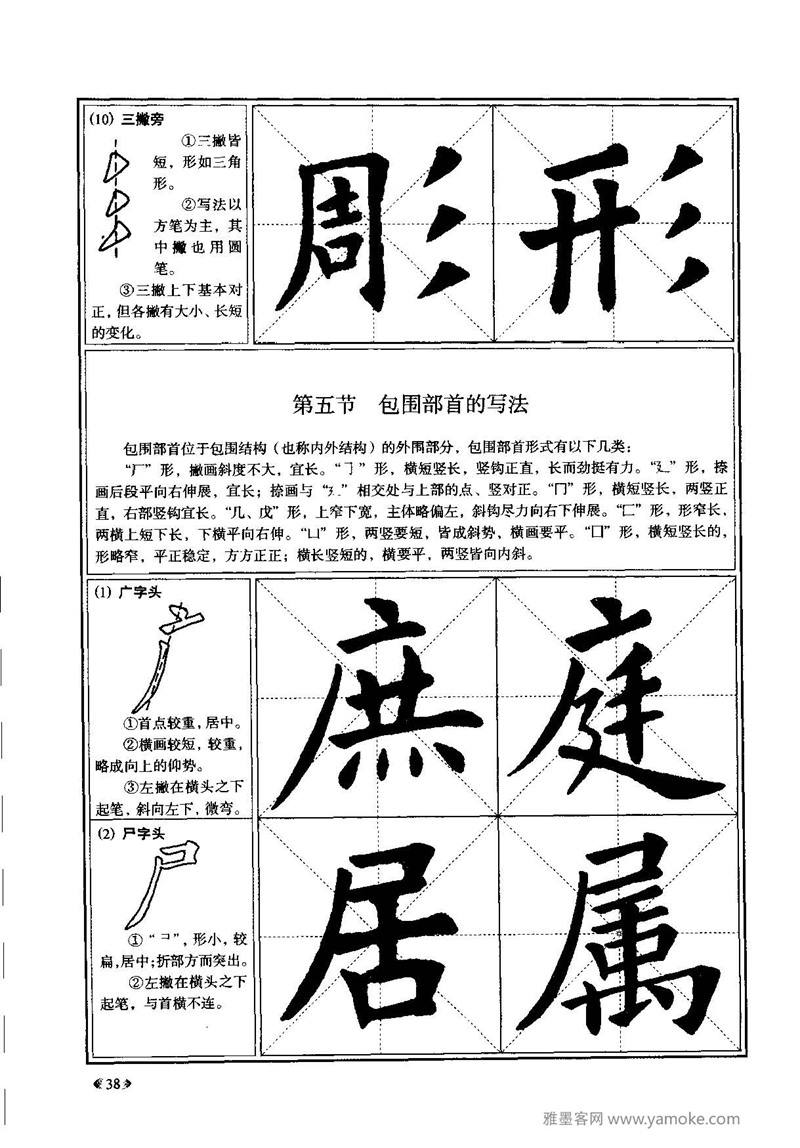 (10) 三撇旁
①三撇皆
短，形如三角
形。
②写法以
方笔为主，其
中撇也用圆
笔。
③三撇上下基本对
正，但各撇有大小、长短
的变化。
彫 形
第五节 包围部首的写法
包围部首位于包围结构（也称内外结构）的外围部分，包围部首形式有以下几类：
“厂”形，撇画斜度不大，宜长。“㇆”形，横短竖长，竖钩正直，长而劲挺有力。“廴”形，捺
画后段平向右伸展，宜长；捺画与“㇋”相交处与上部的点、竖对正。“冂”形，横短竖长，两竖正
直，右部竖钩宜长。“几、戊”形，上窄下宽，主体略偏左，斜钩尽力向右下伸展。“匚”形，形窄长，
两横上短下长，下横平向右伸。“凵”形，两竖要短，皆成斜势，横画要平。“囗”形，横短竖长的，
形略窄，平正稳定，方方正正；横长竖短的，横要平，两竖皆向内斜。
(1) 广字头
①首点较重，居中。
②横画较短，较重，
略成向上的仰势。
③左撇在横头之下
起笔，斜向左下，微弯。
庶 庭
(2) 尸字头
①“コ”，形小，较
扁，居中；折部方而突出。
②左撇在横头之下
起笔，与首横不连。
居 属
38
雅墨客网 www.yamoke.com